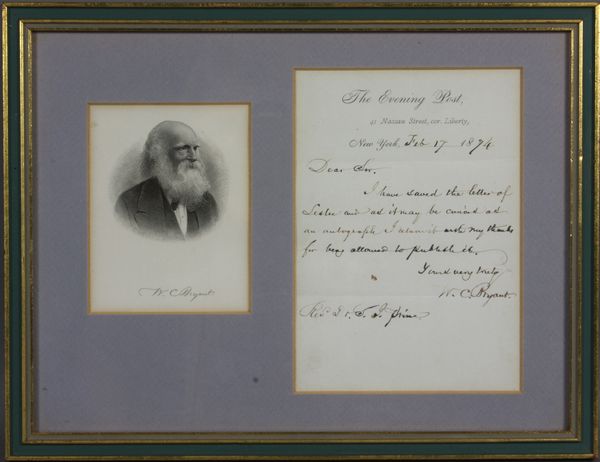 W. C. Bryant
The Evening Post,
41 Nassau Street, cor. Liberty,
New York, Feb 17 1874
Dear Sir.
I have saved the letter of
Leslie and as it may be curious as
an autograph I return it with my thanks
for being allowed to publish it.
Yours very truly
W. C. Bryant.
Rev. Dr. S. I. Prime.